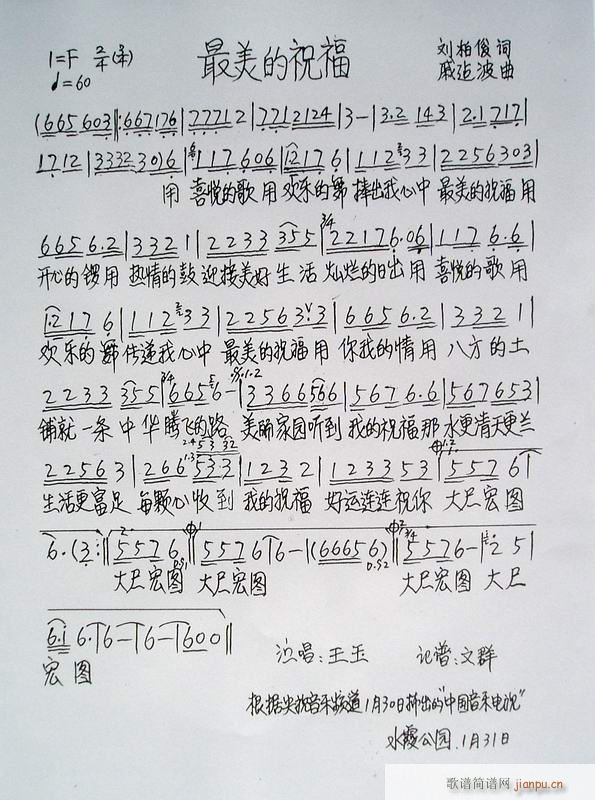 最美的祝福
1=F 2/4(3/4)
♩=60
刘柏俊 词
戚建波 曲
(665 603‖:667176|77712|7712124|3-|3.2 143|2.1717|
1712|3332 30)6|117606|12176|112 33|2256303|
用 喜悦的歌 用 欢乐的舞 捧出我心中 最美的祝福 用
6656.2|3321|2233 355|22176.06|1176.6|
开心的锣 用 热情的鼓 迎接美好 生 活 灿烂的日出 用 喜悦的歌 用
12176|112 33|225633|6656.2|3321|
欢乐的舞 传递我心中 最美的祝福 用 你我的情 用 八方的土
2233 355|6656-|3366566|5676.6|567653|
铺就一条 中 华 腾飞的路 美丽家园听到 我的祝福 那 水更清天更兰
22563|266533|1232|123353|5576|
生活更富足 每颗心收到 我的祝福 好运连连祝你 大吉宏图
6.(3:‖5576|5576|6-|(66656)|5576-|251|
大吉宏图 大吉宏图 大吉宏图 大吉
6.1 6.|6-|6-|600‖
宏 图
演唱:王玉 记谱:文群
根据央视音乐频道1月30日播出的"中国音乐电视"
水霞公园.1月31日
歌谱简谱网
jianpu.cn